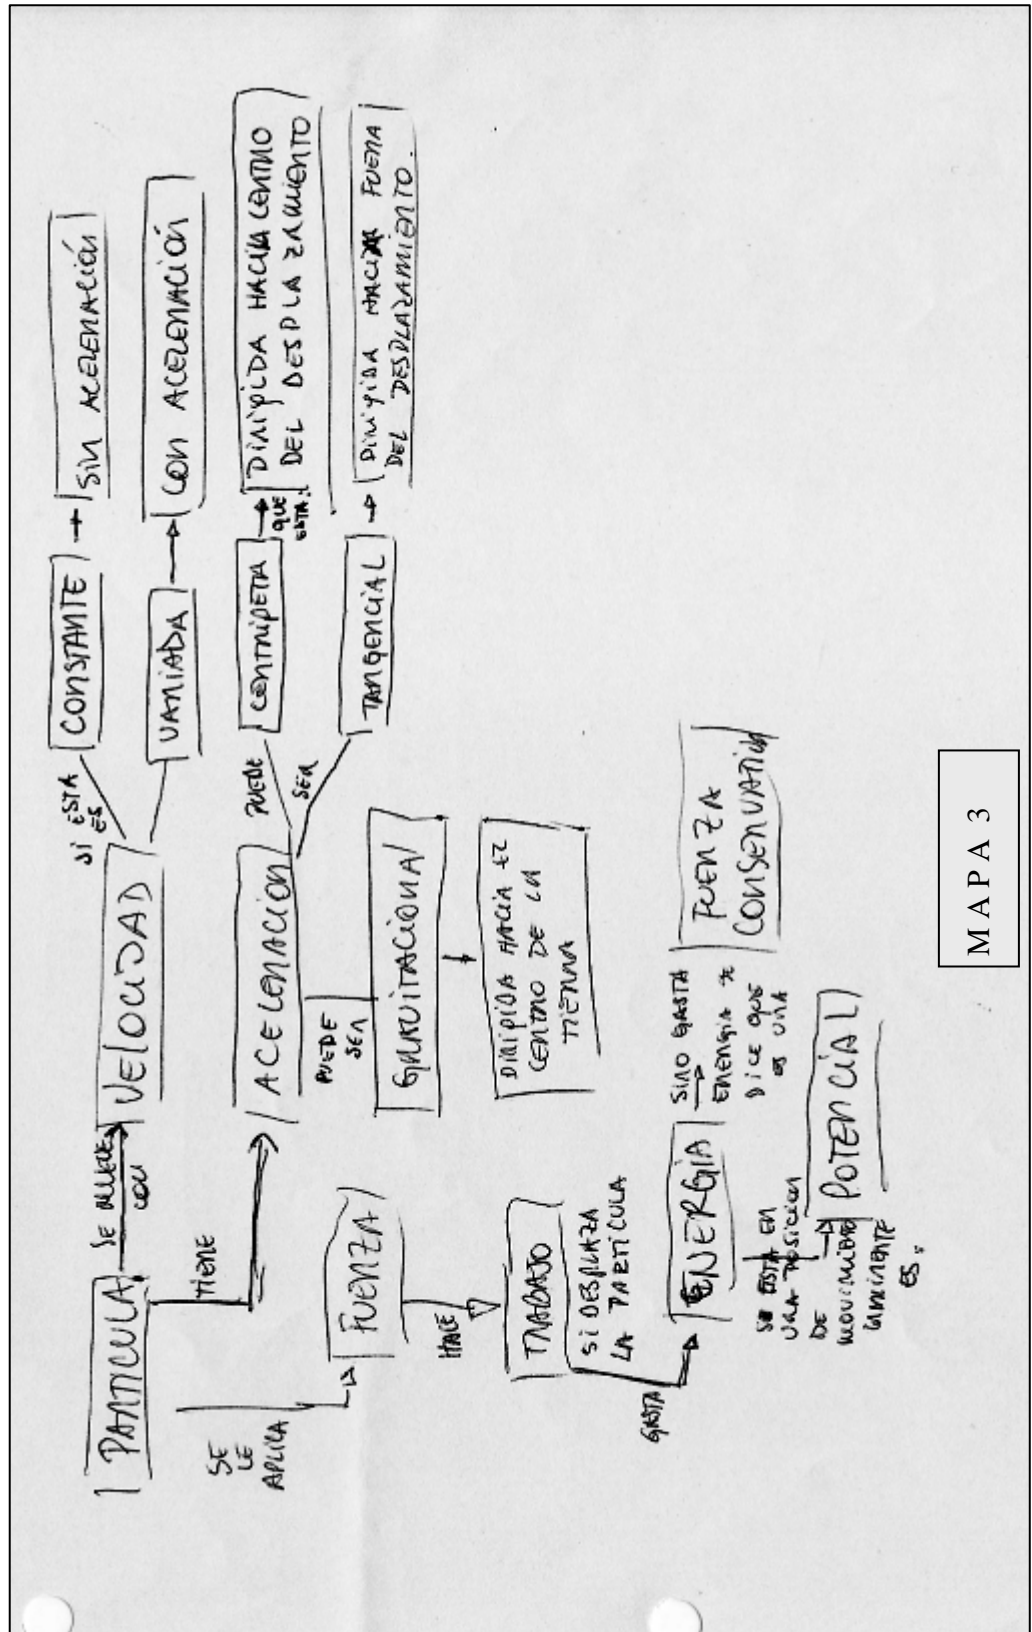 PARTICULA
SE MUEVE
CON
VELOCIDAD
SI ESTA
ES
CONSTANTE
SIN ACELERACIÓN
VARIADA
CON ACELERACIÓN
TIENE
ACELERACION
PUEDE
SER
CENTRIPETA
QUE
ESTA:
DIRIGIDA HACIA CENTRO
DEL DESPLAZAMIENTO
TANGENCIAL
DIRIGIDA HACIA FUERA
DEL DESPLAZAMIENTO.
PUEDE
SER
GRAVITACIONAL
DIRIGIDA HACIA EL
CENTRO DE LA
TIERRA
SE
LE
APLICA
FUERZA
HACE
TRABAJO
SI DESPLAZA
LA PARTICULA
GASTA
ENERGIA
SI NO GASTA
ENERGIA SE
DICE QUE
ES UNA
FUERZA
CONSERVATIVA
SI ESTA EN
UNA POSICION
DE
MOVIMIENTO
INMINENTE
ES.
POTENCIAL
MAPA 3